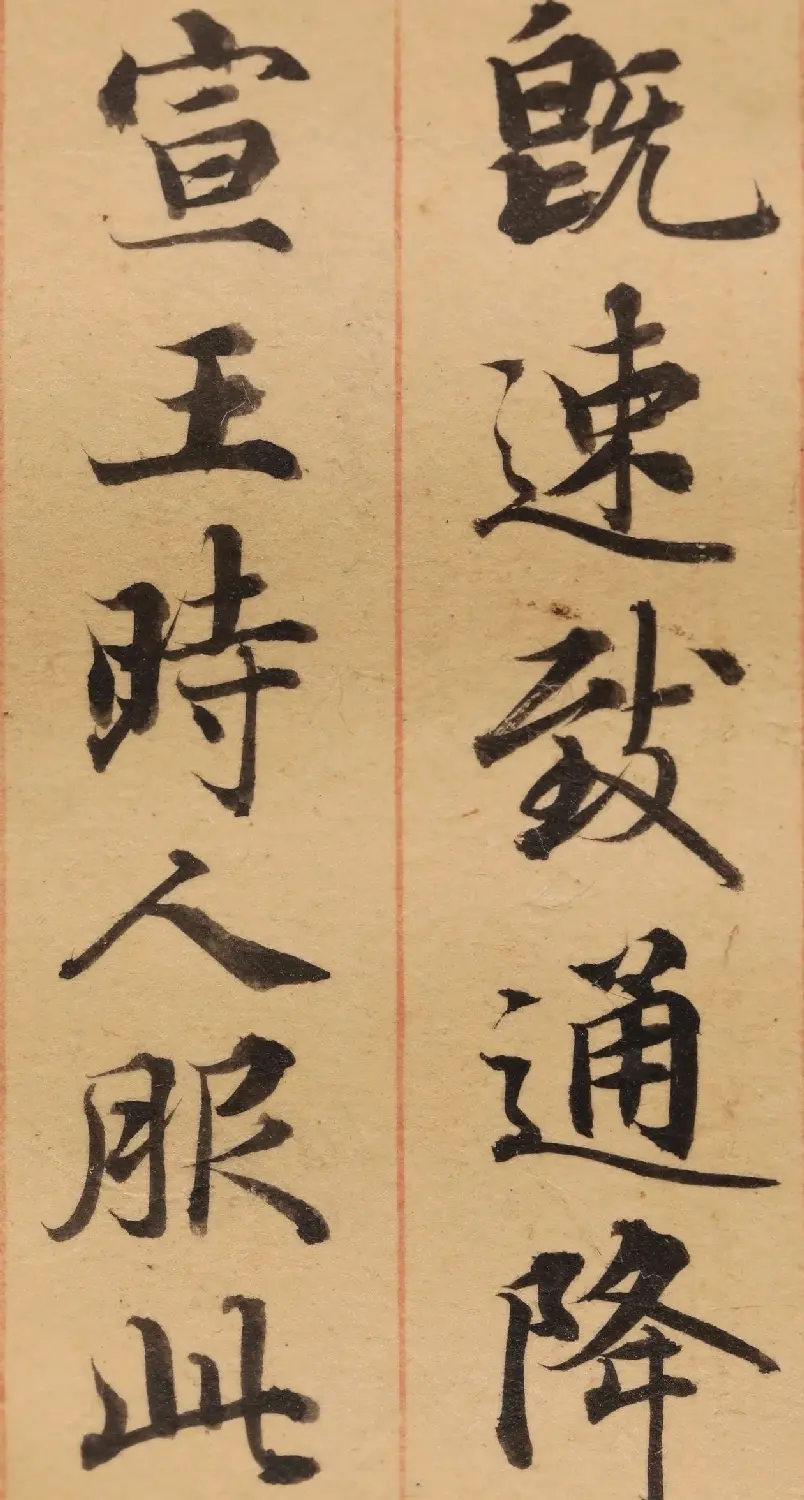 既速致通降
宣王時人服此